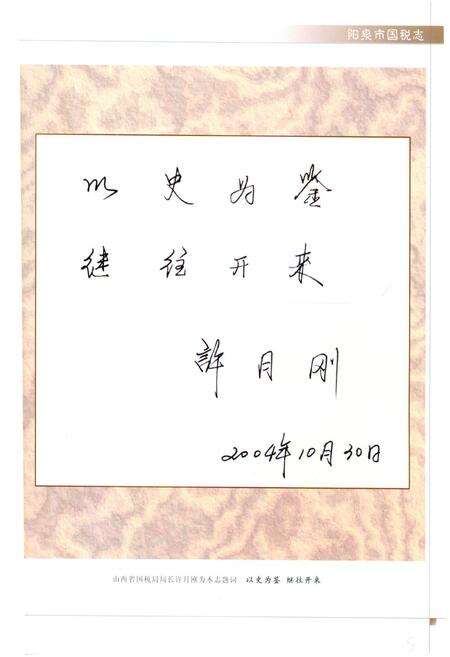 阳泉市国税志
以史为鉴
继往开来
許月刚
2004年10月30日
山西省国税局局长许月刚为本志题词 以史为鉴 继往开来